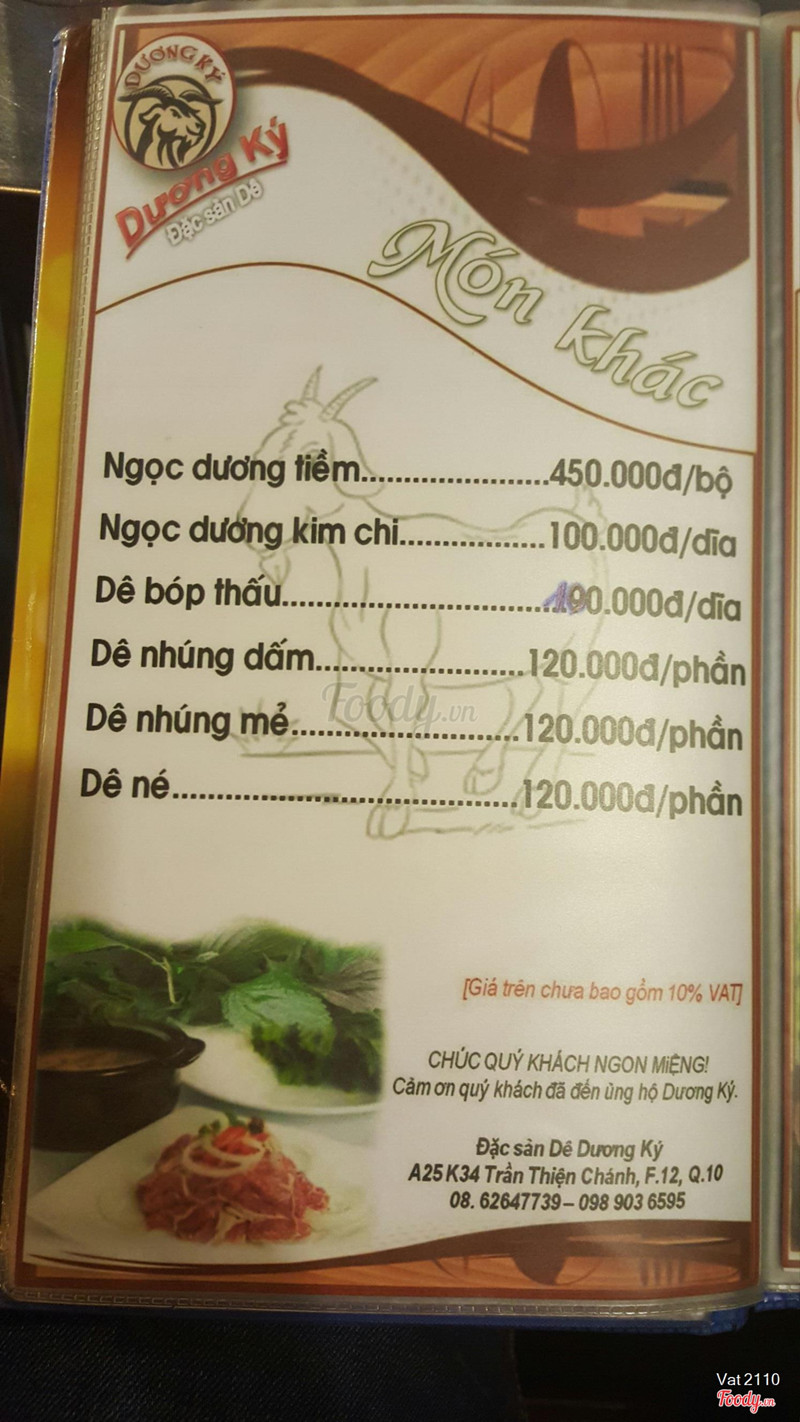 DƯƠNG KÝ
Dương Ký
Đặc sản Dê
Món khác
Ngọc dương tiềm......................450.000đ/bộ
Ngọc dương kim chi.................100.000đ/dĩa
Dê bóp thấu...............................100.000đ/dĩa
Dê nhúng dấm........................120.000đ/phần
Foody.vn
Dê nhúng mẻ..........................120.000đ/phần
Dê né.......................................120.000đ/phần
[Giá trên chưa bao gồm 10% VAT]
CHÚC QUÝ KHÁCH NGON MIỆNG!
Cảm ơn quý khách đã đến ủng hộ Dương Ký.
Đặc sản Dê Dương Ký
A25 K34 Trần Thiện Chánh, F.12, Q.10
08. 62647739 – 098 903 6595
Vat2110
Foody.vn